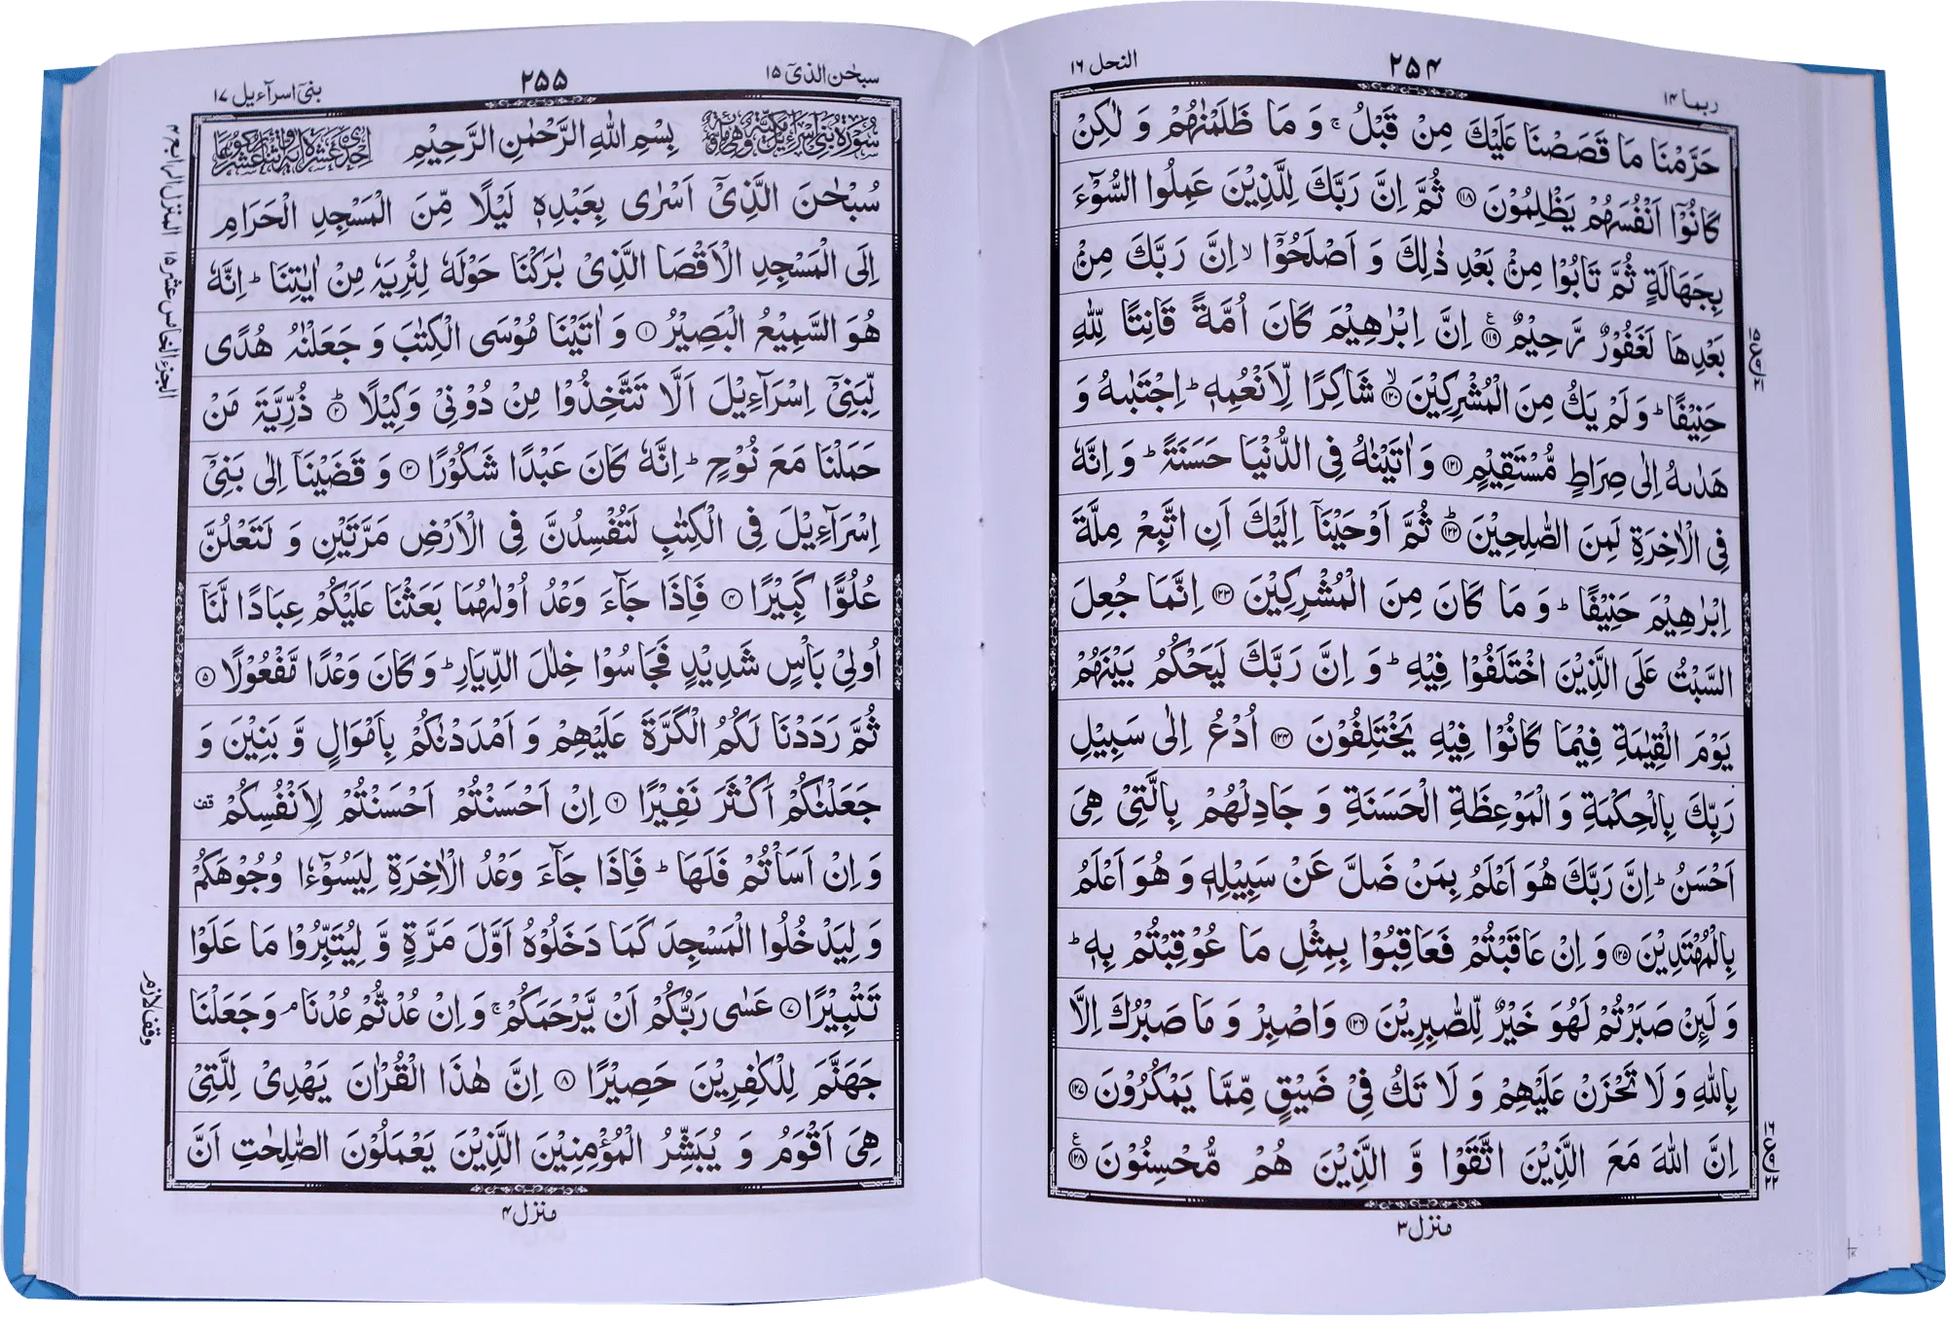 ربما ١٤
٢٥٤
النحل ١٦
حَرَّمْنَا مَا قَصَصْنَا عَلَيْكَ مِنْ قَبْلُ ۚ وَ مَا ظَلَمْنٰهُمْ وَ لٰكِنْ
كَانُوْۤا اَنْفُسَهُمْ يَظْلِمُوْنَ ۝١١٨ ثُمَّ اِنَّ رَبَّكَ لِلَّذِيْنَ عَمِلُوا السُّوْٓءَ
بِجَهَالَةٍ ثُمَّ تَابُوْا مِنْۢ بَعْدِ ذٰلِكَ وَ اَصْلَحُوْۤا ۙ اِنَّ رَبَّكَ مِنْۢ
بَعْدِهَا لَغَفُوْرٌ رَّحِيْمٌ ۝١١٩ اِنَّ اِبْرٰهِيْمَ كَانَ اُمَّةً قَانِتًا لِّلّٰهِ
حَنِيْفًا ؕ وَ لَمْ يَكُ مِنَ الْمُشْرِكِيْنَ ۝١٢٠ۙ شَاكِرًا لِّاَنْعُمِهٖ ؕ اِجْتَبٰىهُ وَ
هَدٰىهُ اِلٰى صِرَاطٍ مُّسْتَقِيْمٍ ۝١٢١ وَ اٰتَيْنٰهُ فِى الدُّنْيَا حَسَنَةً ؕ وَ اِنَّهٗ
فِى الْاٰخِرَةِ لَمِنَ الصّٰلِحِيْنَ ۝١٢٢ؕ ثُمَّ اَوْحَيْنَاۤ اِلَيْكَ اَنِ اتَّبِعْ مِلَّةَ
اِبْرٰهِيْمَ حَنِيْفًا ؕ وَ مَا كَانَ مِنَ الْمُشْرِكِيْنَ ۝١٢٣ اِنَّمَا جُعِلَ
السَّبْتُ عَلَى الَّذِيْنَ اخْتَلَفُوْا فِيْهِ ؕ وَ اِنَّ رَبَّكَ لَيَحْكُمُ بَيْنَهُمْ
يَوْمَ الْقِيٰمَةِ فِيْمَا كَانُوْا فِيْهِ يَخْتَلِفُوْنَ ۝١٢٤ اُدْعُ اِلٰى سَبِيْلِ
رَبِّكَ بِالْحِكْمَةِ وَ الْمَوْعِظَةِ الْحَسَنَةِ وَ جَادِلْهُمْ بِالَّتِيْ هِيَ
اَحْسَنُ ؕ اِنَّ رَبَّكَ هُوَ اَعْلَمُ بِمَنْ ضَلَّ عَنْ سَبِيْلِهٖ وَ هُوَ اَعْلَمُ
بِالْمُهْتَدِيْنَ ۝١٢٥ وَ اِنْ عَاقَبْتُمْ فَعَاقِبُوْا بِمِثْلِ مَا عُوْقِبْتُمْ بِهٖ ؕ
وَ لَىِٕنْ صَبَرْتُمْ لَهُوَ خَيْرٌ لِّلصّٰبِرِيْنَ ۝١٢٦ وَاصْبِرْ وَ مَا صَبْرُكَ اِلَّا
بِاللّٰهِ وَ لَا تَحْزَنْ عَلَيْهِمْ وَ لَا تَكُ فِيْ ضَيْقٍ مِّمَّا يَمْكُرُوْنَ ۝١٢٧
اِنَّ اللّٰهَ مَعَ الَّذِيْنَ اتَّقَوْا وَّ الَّذِيْنَ هُمْ مُّحْسِنُوْنَ ۝١٢٨
منزل ٣
سبحٰن الذیۤ ١٥
٢٥٥
بنیۤ اسرآءیل ١٧
بِسْمِ اللّٰهِ الرَّحْمٰنِ الرَّحِيْمِ
سُبْحٰنَ الَّذِيْۤ اَسْرٰى بِعَبْدِهٖ لَيْلًا مِّنَ الْمَسْجِدِ الْحَرَامِ
اِلَى الْمَسْجِدِ الْاَقْصَا الَّذِيْ بٰرَكْنَا حَوْلَهٗ لِنُرِيَهٗ مِنْ اٰيٰتِنَا ؕ اِنَّهٗ
هُوَ السَّمِيْعُ الْبَصِيْرُ ۝١ وَ اٰتَيْنَا مُوْسَى الْكِتٰبَ وَ جَعَلْنٰهُ هُدًى
لِّبَنِيْۤ اِسْرَآءِيْلَ اَلَّا تَتَّخِذُوْا مِنْ دُوْنِيْ وَكِيْلًا ۝٢ؕ ذُرِّيَّةَ مَنْ
حَمَلْنَا مَعَ نُوْحٍ ؕ اِنَّهٗ كَانَ عَبْدًا شَكُوْرًا ۝٣ وَ قَضَيْنَاۤ اِلٰى بَنِيْۤ
اِسْرَآءِيْلَ فِى الْكِتٰبِ لَتُفْسِدُنَّ فِى الْاَرْضِ مَرَّتَيْنِ وَ لَتَعْلُنَّ
عُلُوًّا كَبِيْرًا ۝٤ فَاِذَا جَآءَ وَعْدُ اُوْلٰىهُمَا بَعَثْنَا عَلَيْكُمْ عِبَادًا لَّنَاۤ
اُولِيْ بَاْسٍ شَدِيْدٍ فَجَاسُوْا خِلٰلَ الدِّيَارِ ؕ وَ كَانَ وَعْدًا مَّفْعُوْلًا ۝٥
ثُمَّ رَدَدْنَا لَكُمُ الْكَرَّةَ عَلَيْهِمْ وَ اَمْدَدْنٰكُمْ بِاَمْوَالٍ وَّ بَنِيْنَ وَ
جَعَلْنٰكُمْ اَكْثَرَ نَفِيْرًا ۝٦ اِنْ اَحْسَنْتُمْ اَحْسَنْتُمْ لِاَنْفُسِكُمْ قف
وَ اِنْ اَسَاْتُمْ فَلَهَا ؕ فَاِذَا جَآءَ وَعْدُ الْاٰخِرَةِ لِيَسُوْٓءٗا وُجُوْهَكُمْ
وَ لِيَدْخُلُوا الْمَسْجِدَ كَمَا دَخَلُوْهُ اَوَّلَ مَرَّةٍ وَّ لِيُتَبِّرُوْا مَا عَلَوْا
تَتْبِيْرًا ۝٧ عَسٰى رَبُّكُمْ اَنْ يَّرْحَمَكُمْ ۚ وَ اِنْ عُدْتُّمْ عُدْنَا ۘ وَ جَعَلْنَا
جَهَنَّمَ لِلْكٰفِرِيْنَ حَصِيْرًا ۝٨ اِنَّ هٰذَا الْقُرْاٰنَ يَهْدِيْ لِلَّتِيْ
هِيَ اَقْوَمُ وَ يُبَشِّرُ الْمُؤْمِنِيْنَ الَّذِيْنَ يَعْمَلُوْنَ الصّٰلِحٰتِ اَنَّ
وقف لازم
الجزء الخامس عشر ١٥
منزل ٤